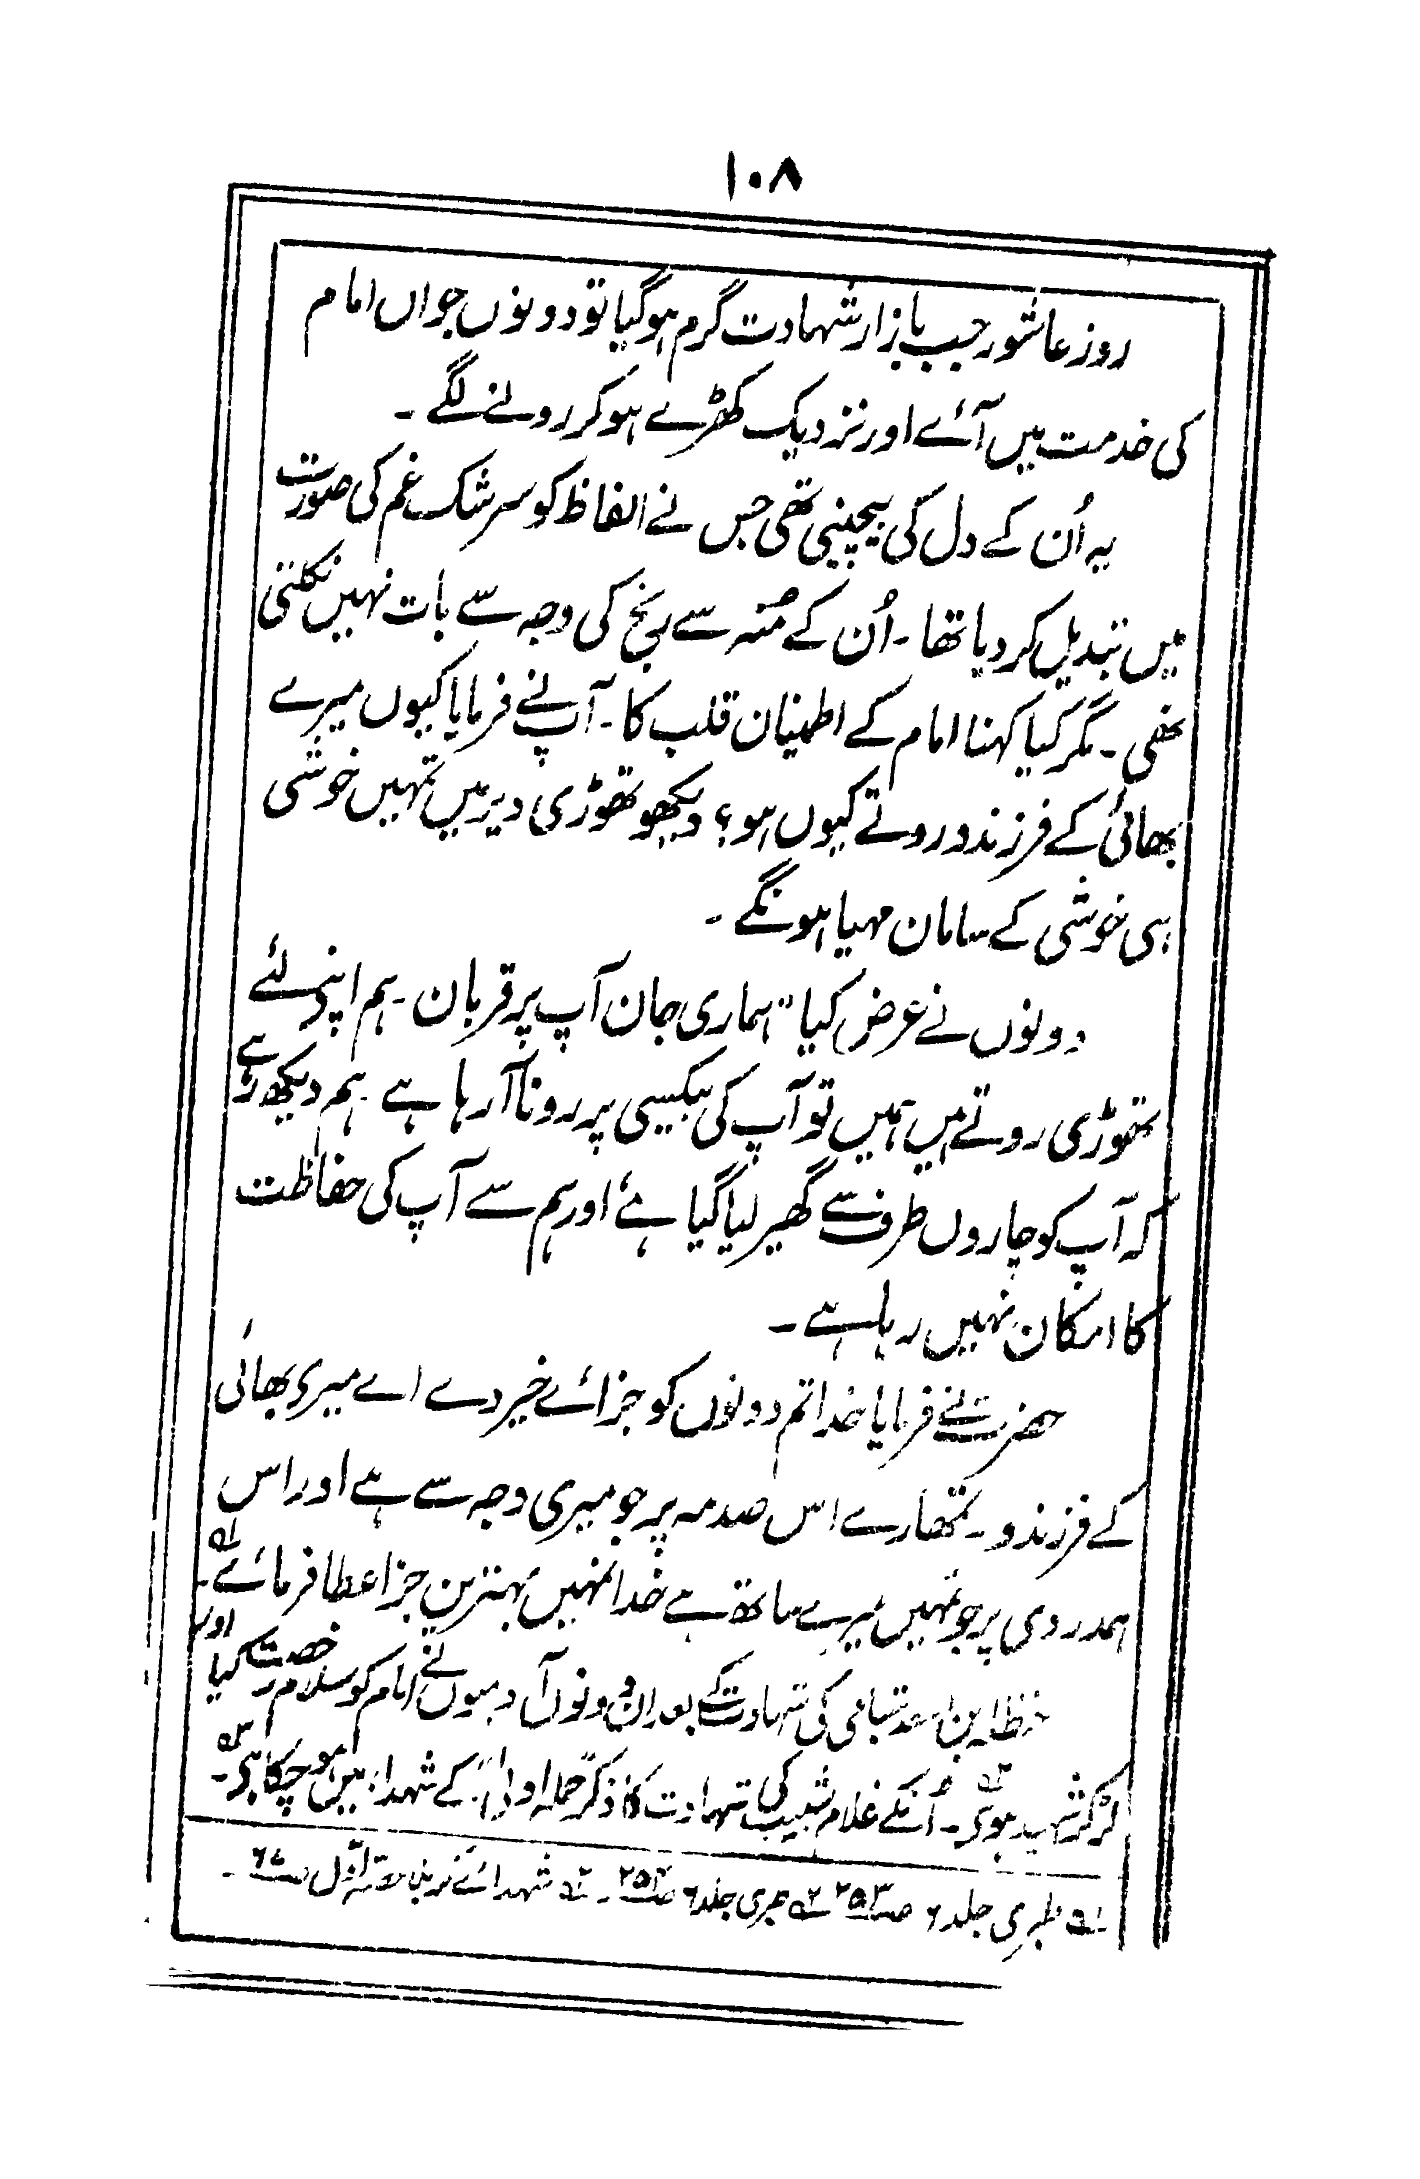 ۱۰۸
روز عاشور جب بازار شہادت گرم ہو گیا تو دونوں جواں امام
کی خدمت میں آئے اور نزدیک کھڑے ہو کر رونے لگے ۔
یہ اُن کے دل کی بیچینی تھی جس نے الفاظ کو سرشک غم کی صورت
میں تبدیل کر دیا تھا ۔ اُن کے مُنہ سے رنج کی وجہ سے بات نہیں نکلتی
تھی ۔ مگر کیا کہنا امام کے اطمینان قلب کا ۔ آپ نے فرمایا کیوں میرے
بھائی کے فرزندو روتے کیوں ہو؟ دیکھو تھوڑی دیر میں تمہیں خوشی
ہی خوشی کے سامان مہیا ہونگے ۔
دونوں نے عرض کیا "ہماری جان آپ پر قربان ۔ ہم اپنے لئے
تھوڑی روتے ہیں ہمیں تو آپ کی بیکسی پر رونا آ رہا ہے ۔ ہم دیکھ رہے
کہ آپ کو چاروں طرف سے گھیر لیا گیا ہے اور ہم سے آپ کی حفاظت
کا امکان نہیں رہا ہے ۔
حضرت نے فرمایا خدا تم دونوں کو جزائے خیر دے اے میرے بھائی
کے فرزندو ۔ تمھارے اس صدمہ پر جو میری وجہ سے ہے اور اس
ہمدردی پر جو تمہیں میرے ساتھ ہے خدا تمہیں بہترین جزا عطا فرمائے ۔ ؎۱
حنظلہ بن اسعد شبامی کی شہادت کے بعد ان دونوں آدمیوں نے امام کو سلام رخصت کیا اور
لڑ کر شہید ہوئے ۔ ؎۲ اُنکے غلام شبیب کی شہادت کا ذکر "حملہ اولیٰ" کے شہداء میں ہو چکا ہے ۔ ؎۳
؎۱ طبری جلد ۶ ص۲۵۳ ؎۲ طبری جلد ۶ ص۲۵۴ ۔ ؎۳ شہدائے کربلا حصہ اول ص۶۷ ۔